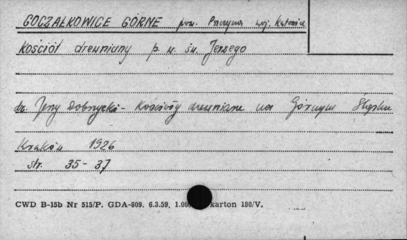 GOCZAŁKOWICE GÓRNE pow. Pszczyna woj. Katowice
Kościół drewniany p.w. św. Jerzego
Jerzy Dobrzycki - Kościoły drewniane na Górnym Śląsku
Kraków 1926
str. 35 - 37
CWD B-15b Nr 515/P. GDA-609. 6.3.59. karton 180/V.